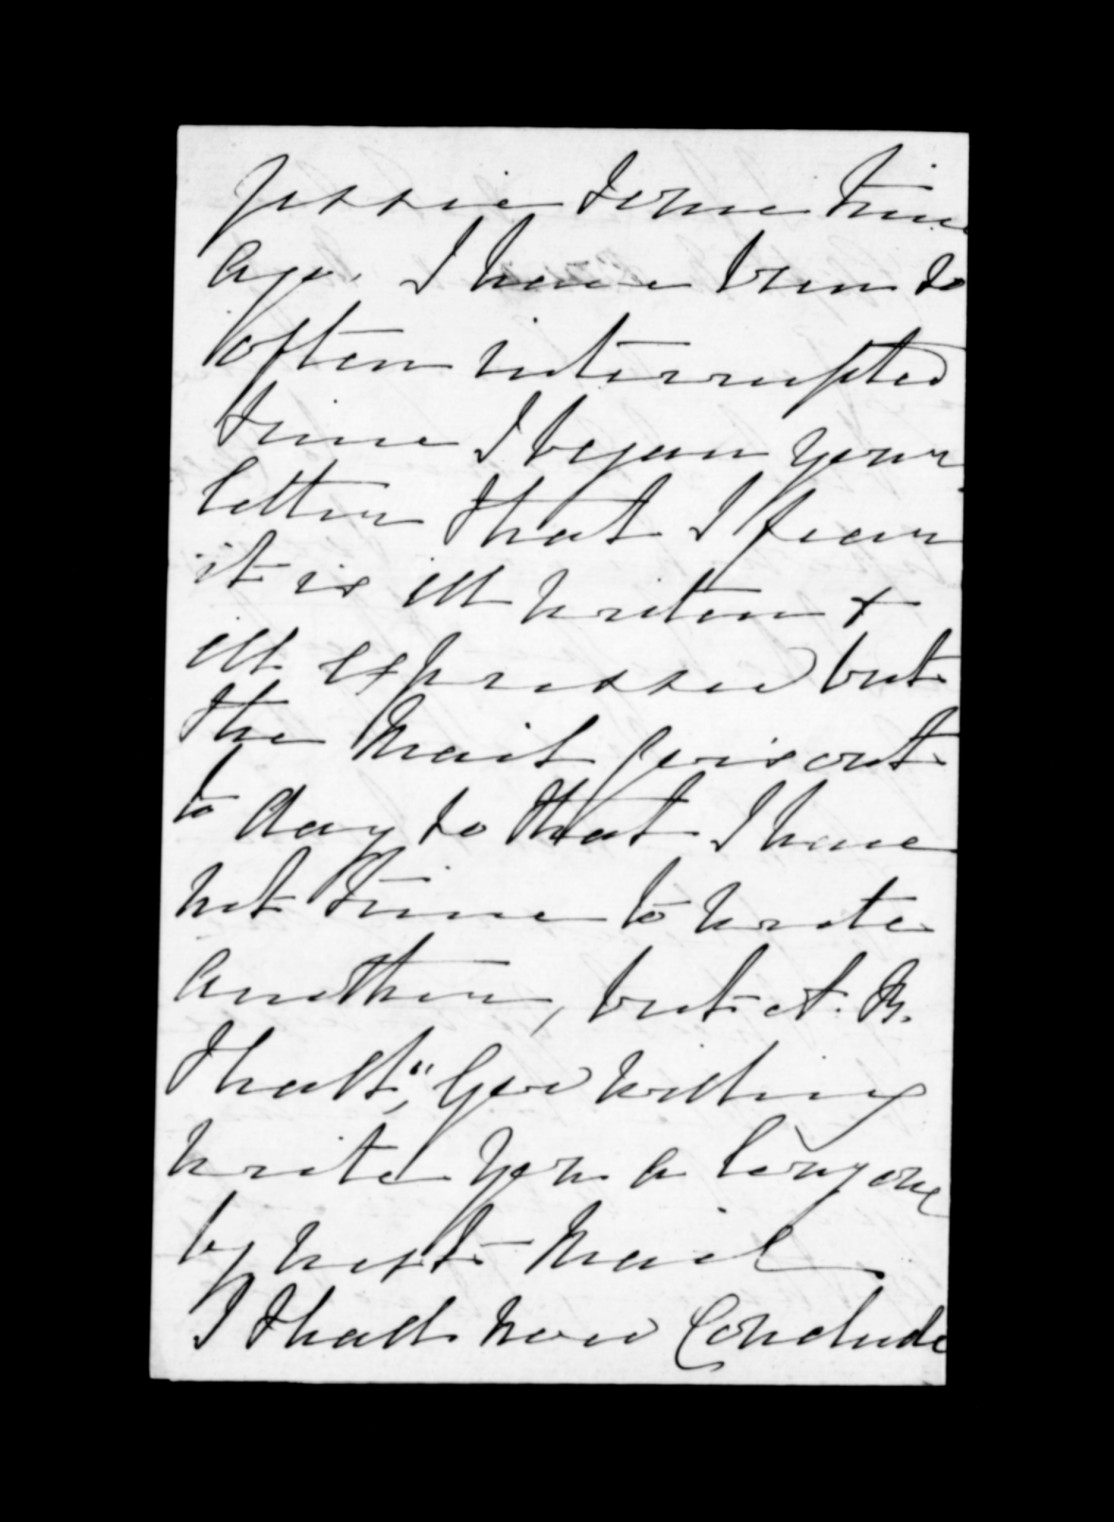 Jessie some time
ago. I have been so
often interrupted
since I began your
letter that I fear
it is ill written &
ill expressed but
the Mail goes out
to day so that I have
not time to write
another, but
shall, "God willing"
write you a long one
by next Mail
I shall now Conclude